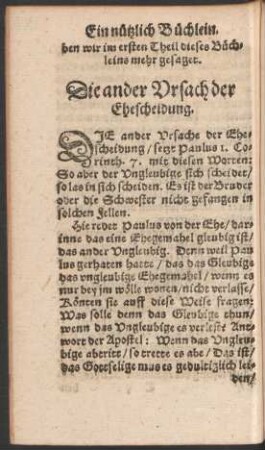 Ein nützlich Büchlein.
ben wir im ersten Theil dieses Büch-
leins mehr gesaget.
Die ander Vrsach der
Ehescheidung.
DIE ander Vrsache der Ehe-
scheidung / setzt Paulus 1. Co-
rinth. 7. mit diesen Worten:
So aber der Vngleubige sich scheidet /
so las in sich scheiden. Es ist der Bruder
oder die Schwester nicht gefangen in
solchen fellen.
Hie redet Paulus von der Ehe / dar-
inne das eine Ehegemahel gleubig ist /
das ander Vngleubig. Denn weil Pau
lus gerhaten hatte / das das Gleubige
das vngleubige Ehegemahel / wenn es
nur bey jm wölle wonen / nicht verlasse /
Könten sie auff diese Weise fragen:
Was solle denn das Gleubige thun /
wenn das Vngleubige es verlest? Ant-
wort der Apostel: Wenn das Vngleu-
bige abtritt / so trette es abe / Das ist /
das Gottselige mus es gedultiglich lei-
den /